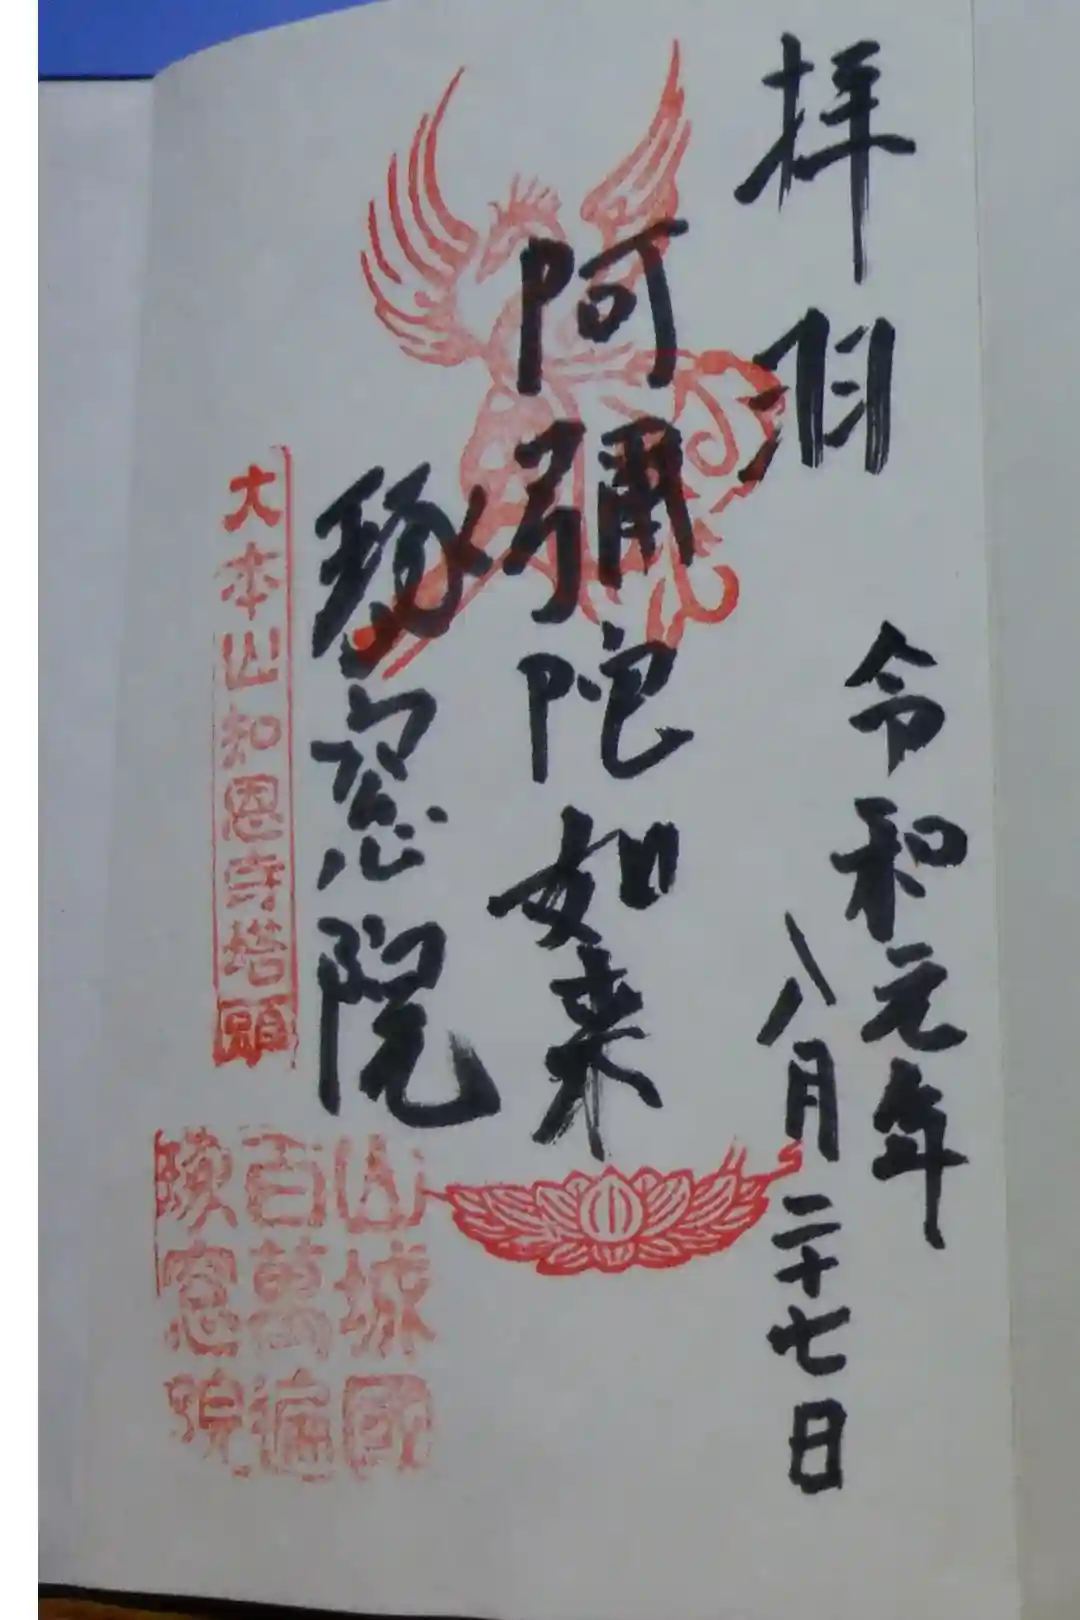 拝羽
令和元年
八月二十七日
阿彌陀如来
琢窓院
大本山知恩寺塔頭
山城國
百萬遍
琢窓院